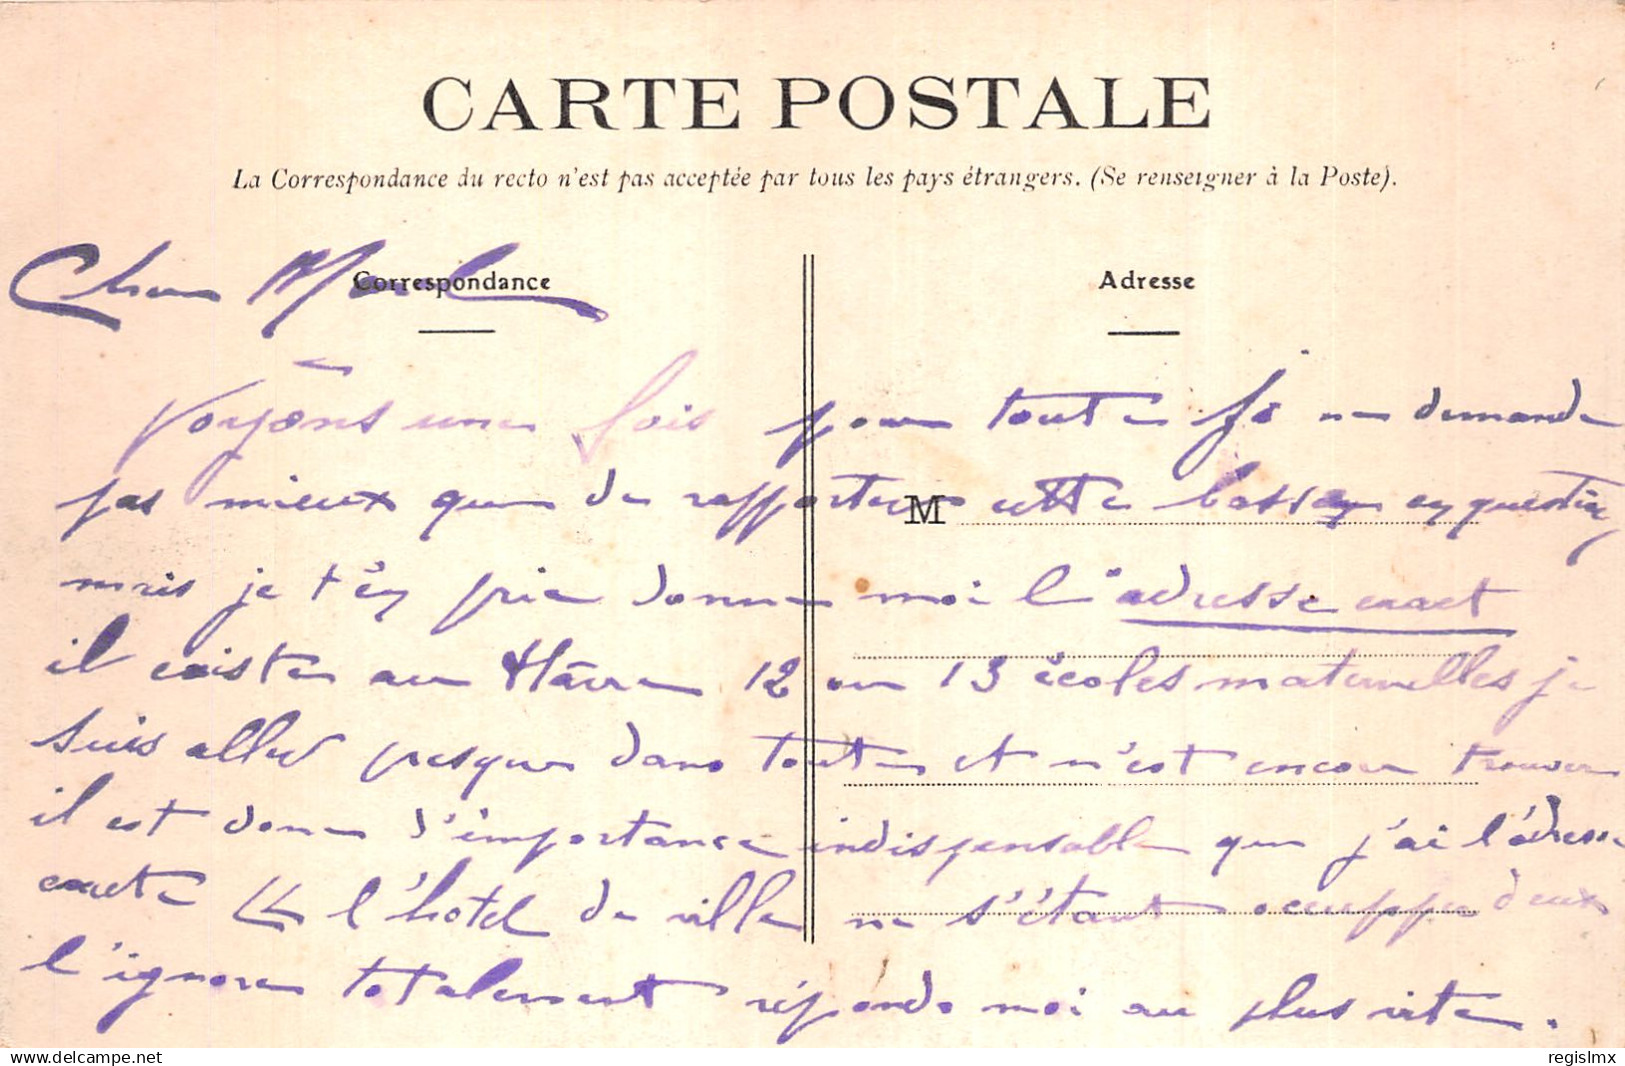 CARTE POSTALE
La Correspondance du recto n'est pas acceptée par tous les pays étrangers. (Se renseigner à la Poste).
Correspondance
Adresse
M
Voyons une fois pour toute je ne demande
pas mieux que de rapporter cette en question,
mais je t'en prie donne moi l'adresse exact
il existe au Hâvre 12 ou 13 écoles maternelles je
suis aller presque dans toutes et n'est encore trouver
il est donc d'importance indispensable que j'ai l'adresse
exacte l'hôtel de ville ne s'étant occupper deux
l'ignore totalement réponds moi au plus vite.
regislmx